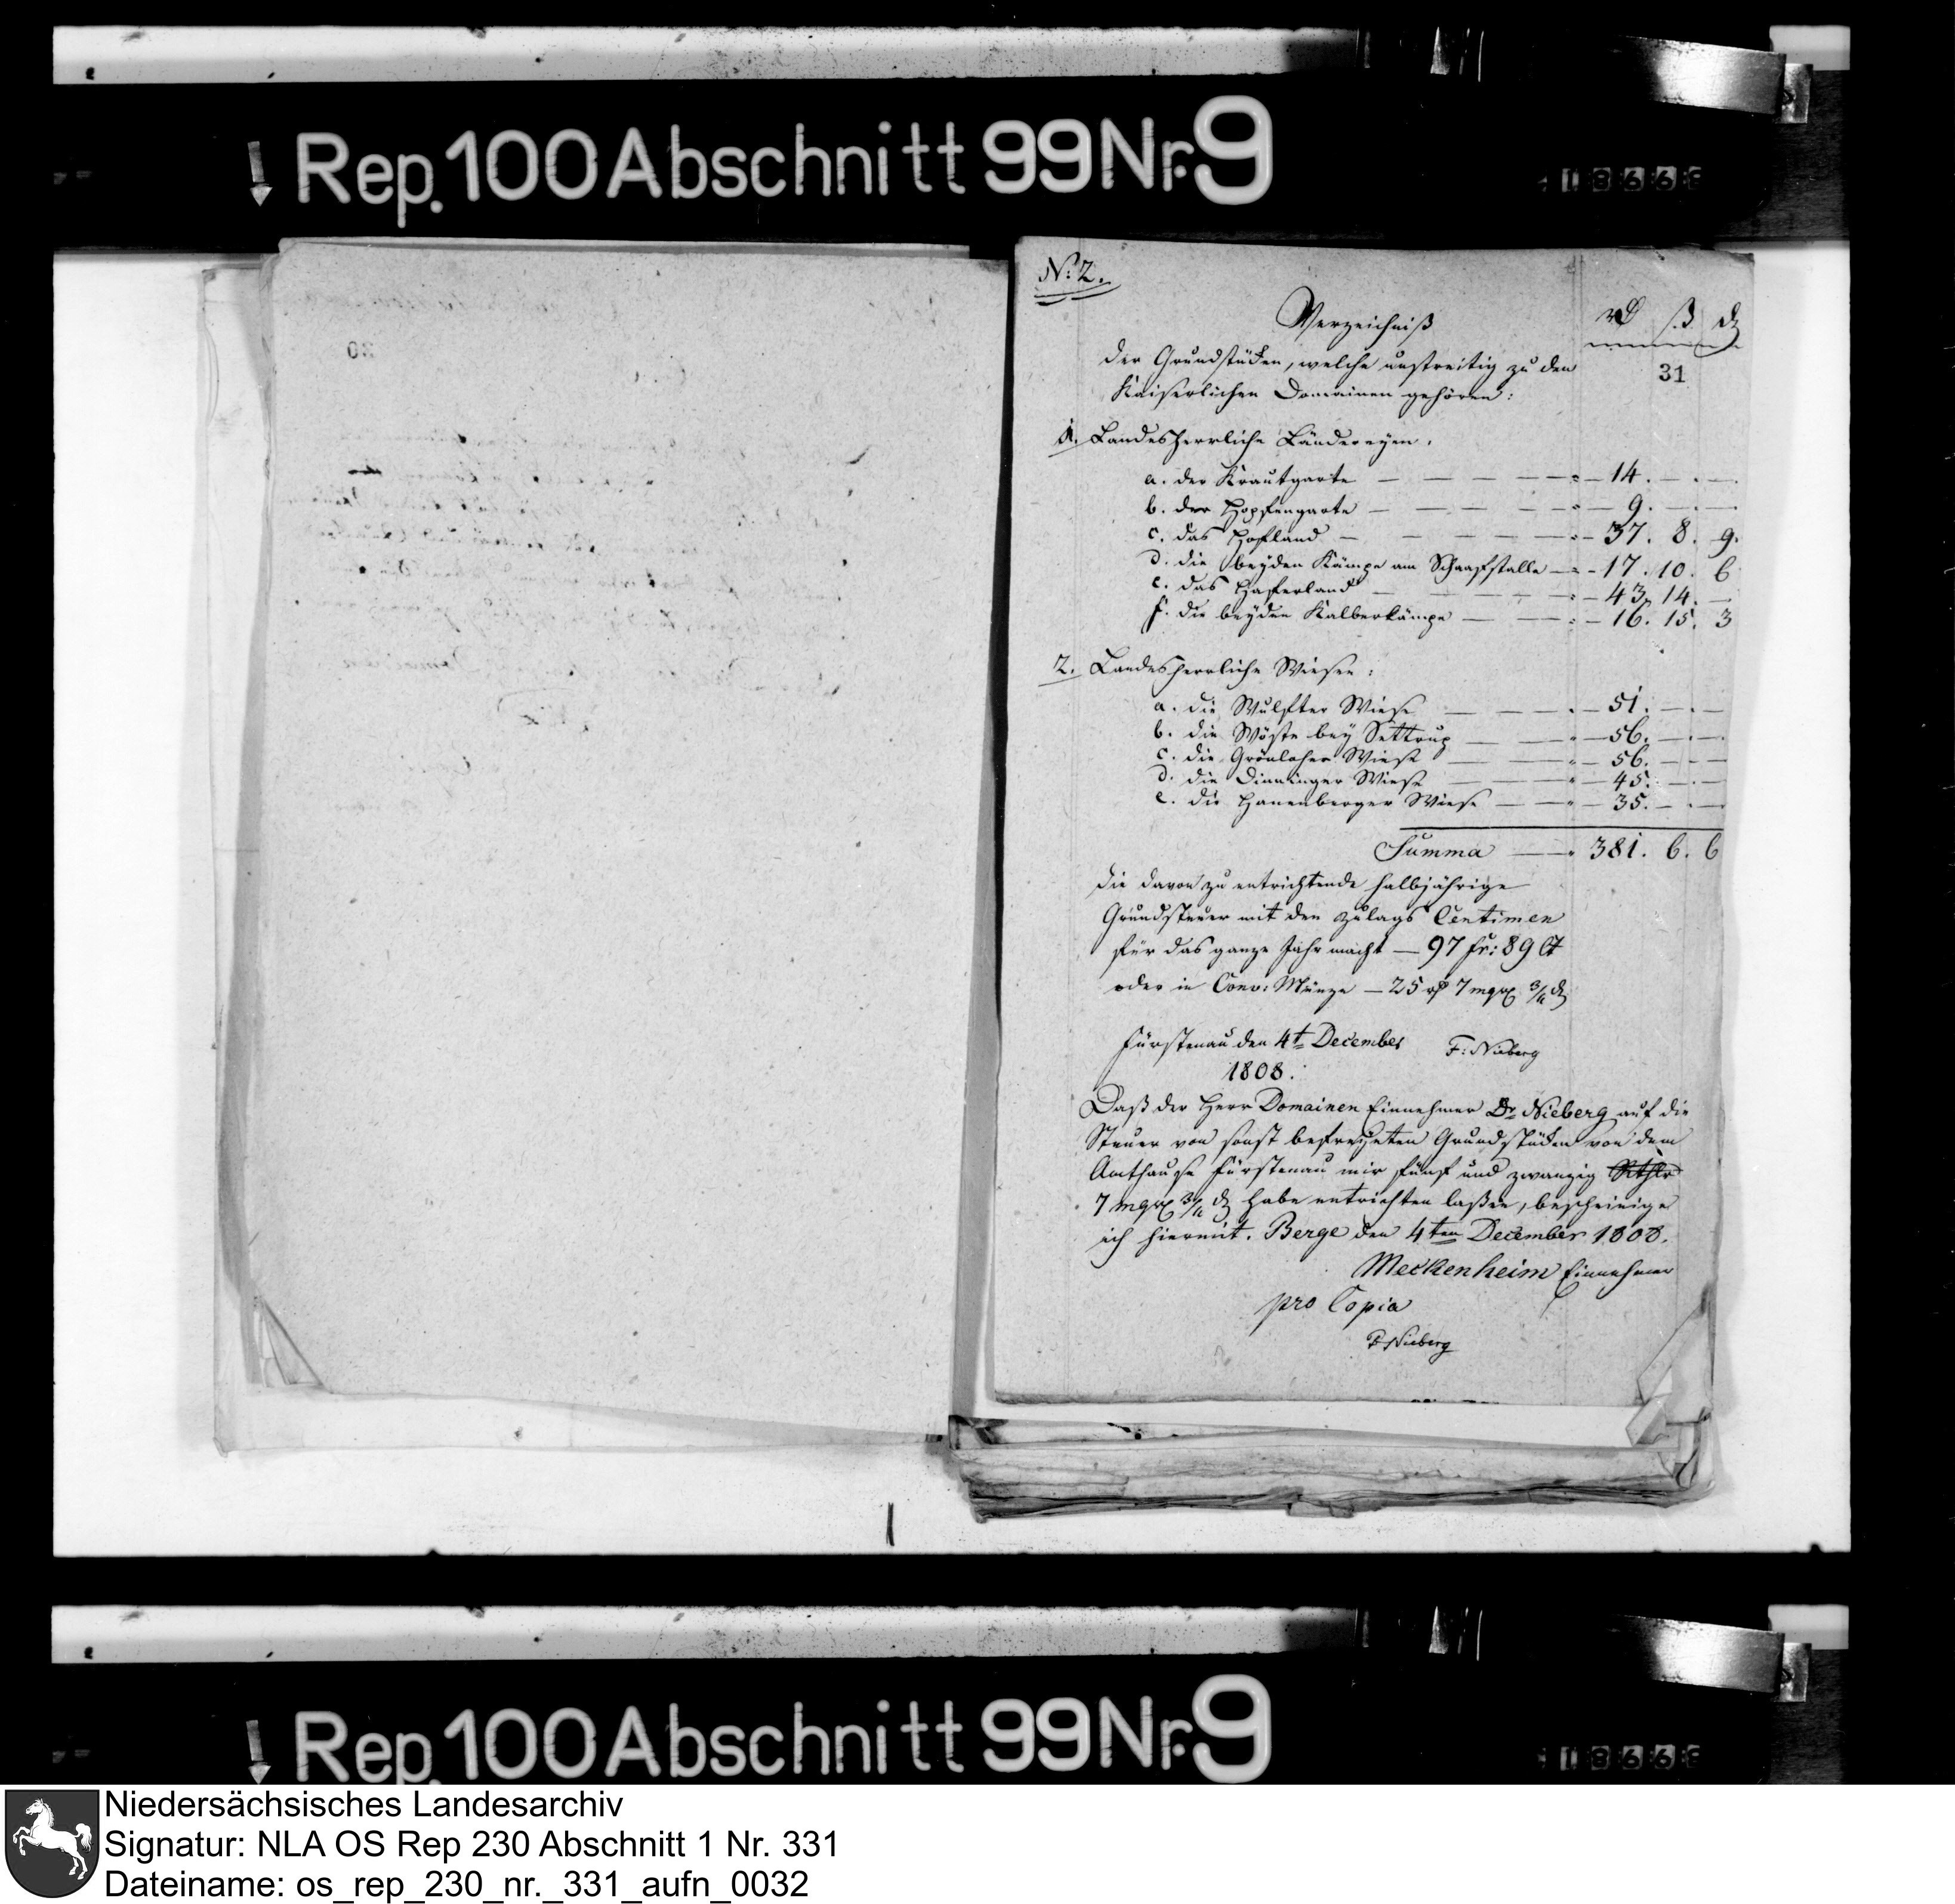 Rep. 100 Abschnitt 99 Nr. 9
18668
30
N: 2.
Verzeichniß
rthl ß d
der Grundstücken, welche unstreitig zu den
31
Kaiserlichen Domainen gehören:
1. Landesherrliche Ländereyen.
a. der Krautgarte — — — — 14. — . —
b. der Hopfengarte — — — — 9. — . —
c. das Hofland — — — — 37. 8. 9.
d. die beyden Kämpe am Schaafstalle — 17. 10. 6
e. das Haferland — — — — 43. 14. —
f. die beyden Kalberkämpe — — 16. 15. 3
2. Landesherrliche Wiesen:
a. die Wulfter Wiese — — — 51. — . —
b. die Wöste bey Settrup — — 56. — . —
c. die Grönloher Wiese — — 56. — . —
d. die Dinninger Wiese — — 45. — . —
e. die Hanenberger Wiese — — 35. — . —
Summa — 381. 6. 6
die davon zu entrichtende halbjährige
Grundsteuer mit den Zulags Centimen
für das ganze Jahr macht — 97 fr: 89 Ct
oder in Conv: Münze — 25 rthl 7 mgr 3/4 d
Fürstenau den 4t December F: Nieberg
1808.
Daß der Herr Domainen Einnehmer Dr Nieberg auf die
Steuer von sonst befreyeten Grundstücken von dem
Amthause Fürstenau mir fünf und zwanzig Rthlr
7 mgr 3/4 d habe entrichten laßen, bescheinige
ich hiermit. Berge den 4ten December 1808.
Meckenheim Einnehmer
pro Copia
F Nieberg
Rep. 100 Abschnitt 99 Nr. 9
18668
Niedersächsisches Landesarchiv
Signatur: NLA OS Rep 230 Abschnitt 1 Nr. 331
Dateiname: os_rep_230_nr._331_aufn_0032